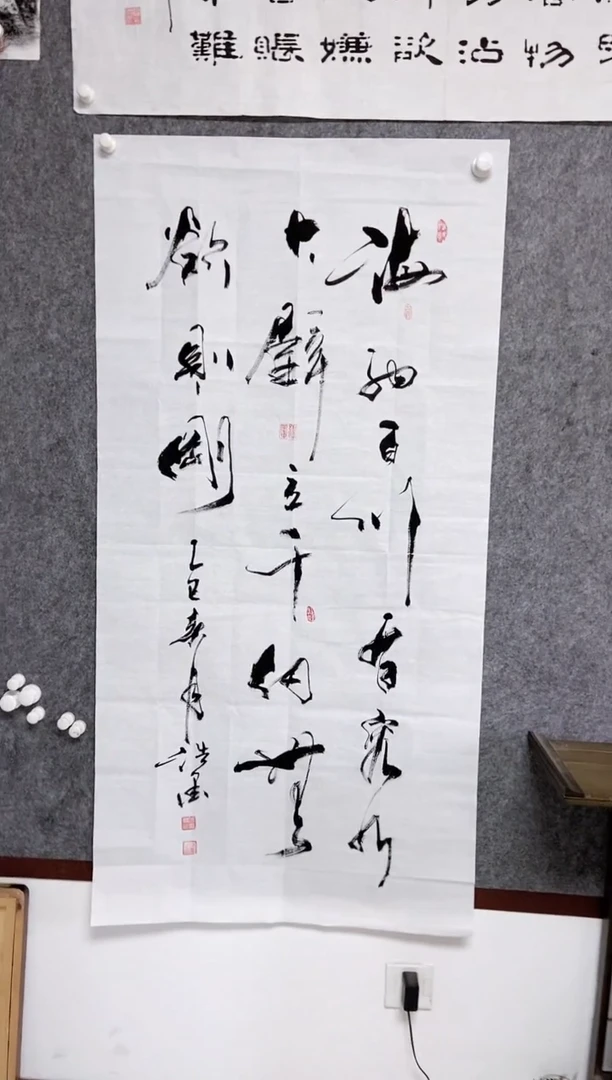 難 嫌 沾 物
海納百川有容乃
大壁立千仞無
欲則剛
乙巳春月